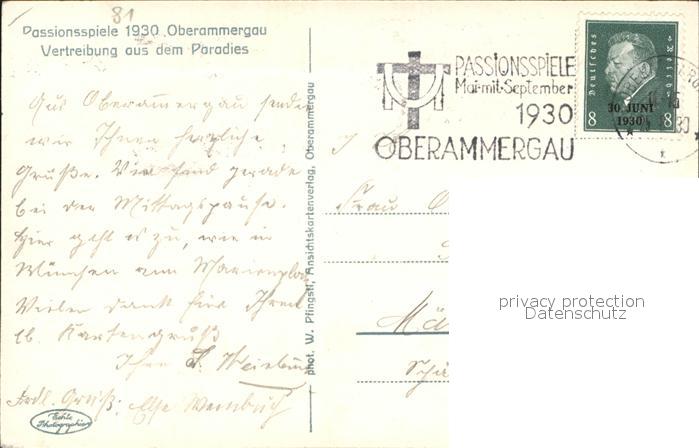 81
Passionsspiele 1930 Oberammergau
Vertreibung aus dem Paradies
PASSIONSSPIELE
Mai-mit-September
1930
OBERAMMERGAU
Deutsches Reich
30. JUNI
1930
8 8
Aus Oberammergau senden
wir Ihnen herzliche
Grüße. Wir sind gerade
bei der Mittagspause.
Hier geht es zu, wie in
München am Marienplatz
Vielen Dank für Ihren
lb. Kartengruß
Ihre
Frdl. Gruß: Else
Echte
Photographie
phot. W. Pfingstl, Ansichtskartenverlag, Oberammergau
Frau
privacy protection
Datenschutz